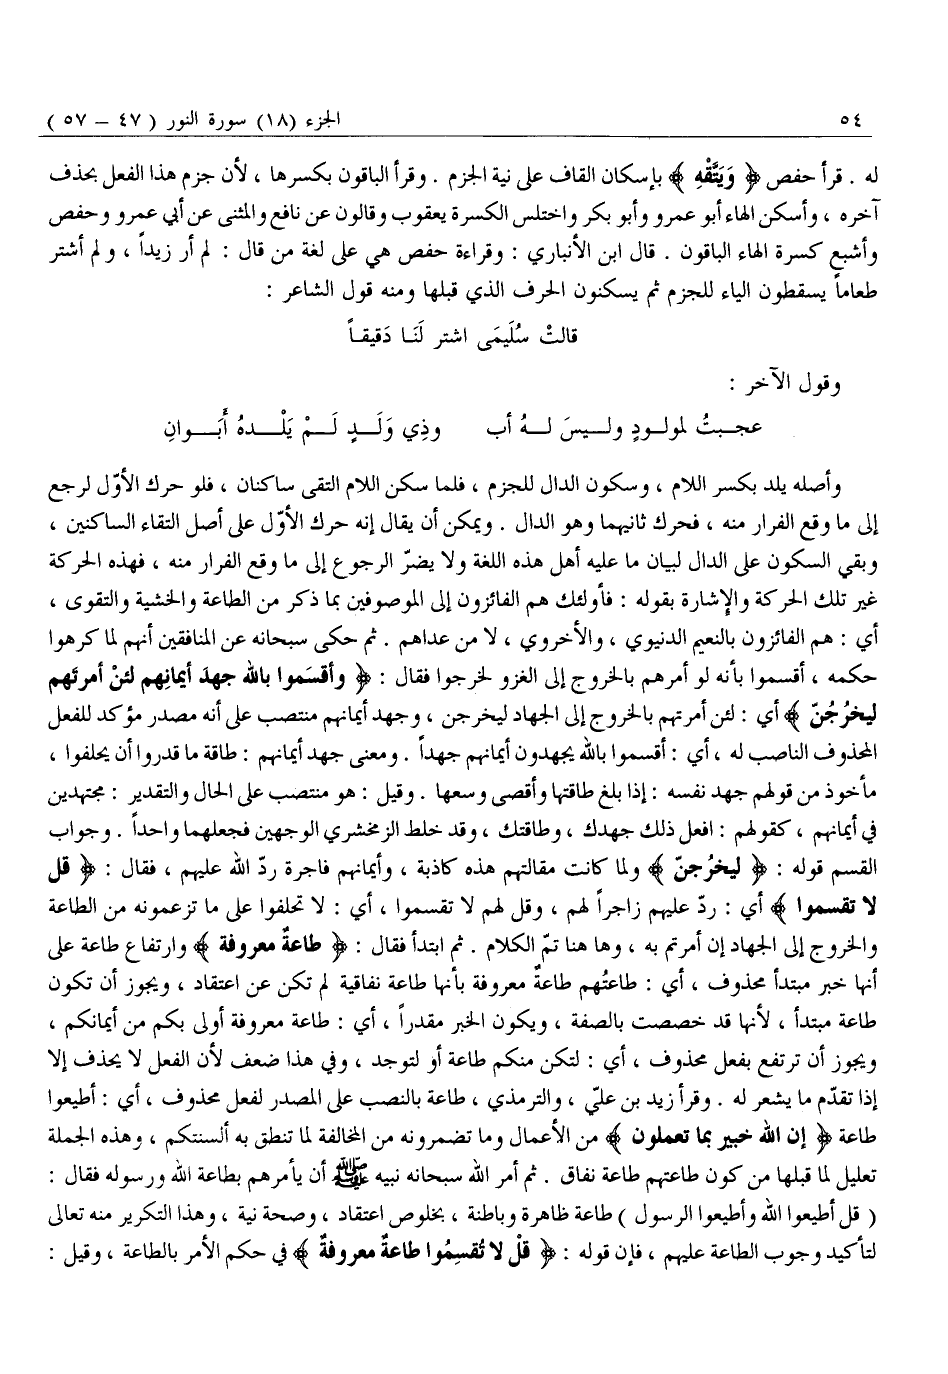 ٥٤ الجزء (١٨) سورة النور ( ٤٧ – ٥٧ )
له . قرأ حفص ﴿ وَيَتَّقْهِ ﴾ بإسكان القاف على نية الجزم . وقرأ الباقون بكسرها ، لأن جزم هذا الفعل بحذف
آخره ، وأسكن الهاء أبو عمرو وأبو بكر واختلس الكسرة يعقوب وقالون عن نافع والمثنى عن أبي عمرو وحفص
وأشبع كسرة الهاء الباقون . قال ابن الأنباري : وقراءة حفص هي على لغة من قال : لم أر زيداً ، ولم أشتر
طعاماً يسقطون الياء للجزم ثم يسكنون الحرف الذي قبلها ومنه قول الشاعر :
قالتْ سُلَيمَى اشتر لَنَا دَقيقاً
وقول الآخر :
عجبتُ لمولودٍ وليسَ له أب وذِي وَلَدٍ لَمْ يَلْدهُ أَبَوانِ
وأصله يلد بكسر اللام ، وسكون الدال للجزم ، فلما سكن اللام التقى ساكنان ، فلو حرك الأوّل لرجع
إلى ما وقع الفرار منه ، فحرك ثانيهما وهو الدال . ويمكن أن يقال إنه حرك الأوّل على أصل التقاء الساكنين ،
وبقي السكون على الدال لبيان ما عليه أهل هذه اللغة ولا يضرّ الرجوع إلى ما وقع الفرار منه ، فهذه الحركة
غير تلك الحركة والإشارة بقوله : فأولئك هم الفائزون إلى الموصوفين بما ذكر من الطاعة والخشية والتقوى ،
أي : هم الفائزون بالنعيم الدنيوي ، والأخروي ، لا من عداهم . ثم حكى سبحانه عن المنافقين أنهم لما كرهوا
حكمه ، أقسموا بأنه لو أمرهم بالخروج إلى الغزو لخرجوا فقال : ﴿ وأقسَموا بالله جهدَ أيمانِهم لئنْ أمرتَهم
ليخرُجُنّ ﴾ أي : لئن أمرتهم بالخروج إلى الجهاد ليخرجن ، وجهد أيمانهم منتصب على أنه مصدر مؤكد للفعل
المحذوف الناصب له ، أي : أقسموا بالله يجهدون أيمانهم جهداً . ومعنى جهد أيمانهم : طاقة ما قدروا أن يحلفوا ،
مأخوذ من قولهم جهد نفسه : إذا بلغ طاقتها وأقصى وسعها . وقيل : هو منتصب على الحال والتقدير : مجتهدين
في أيمانهم ، كقولهم : افعل ذلك جهدك ، وطاقتك ، وقد خلط الزمخشري الوجهين فجعلهما واحداً . وجواب
القسم قوله : ﴿ ليخرُجنّ ﴾ ولما كانت مقالتهم هذه كاذبة ، وأيمانهم فاجرة ردّ الله عليهم ، فقال : ﴿ قل
لا تقسموا ﴾ أي : ردّ عليهم زاجراً لهم ، وقل لهم لا تقسموا ، أي : لا تحلفوا على ما تزعمونه من الطاعة
والخروج إلى الجهاد إن أمرتم به ، وها هنا تمّ الكلام . ثم ابتدأ فقال : ﴿ طاعةٌ معروفة ﴾ وارتفاع طاعة على
أنها خبر مبتدأ محذوف ، أي : طاعتُهم طاعةٌ معروفة بأنها طاعة نفاقية لم تكن عن اعتقاد ، ويجوز أن تكون
طاعة مبتدأ ، لأنها قد خصصت بالصفة ، ويكون الخبر مقدراً ، أي : طاعة معروفة أولى بكم من أيمانكم ،
ويجوز أن ترتفع بفعل محذوف ، أي : لتكن منكم طاعة أو لتوجد ، وفي هذا ضعف لأن الفعل لا يحذف إلا
إذا تقدّم ما يشعر له . وقرأ زيد بن عليّ ، والترمذي ، طاعة بالنصب على المصدر لفعل محذوف ، أي : أطيعوا
طاعة ﴿ إن الله خبير بما تعملون ﴾ من الأعمال وما تضمرونه من المخالفة لما تنطق به ألسنتكم ، وهذه الجملة
تعليل لما قبلها من كون طاعتهم طاعة نفاق . ثم أمر الله سبحانه نبيه ﷺ أن يأمرهم بطاعة الله ورسوله فقال :
( قل أطيعوا الله وأطيعوا الرسول ) طاعة ظاهرة وباطنة ، بخلوص اعتقاد ، وصحة نية ، وهذا التكرير منه تعالى
لتأكيد وجوب الطاعة عليهم ، فإن قوله : ﴿ قلْ لا تُقسِمُوا طاعةٌ معروفةٌ ﴾ في حكم الأمر بالطاعة ، وقيل :